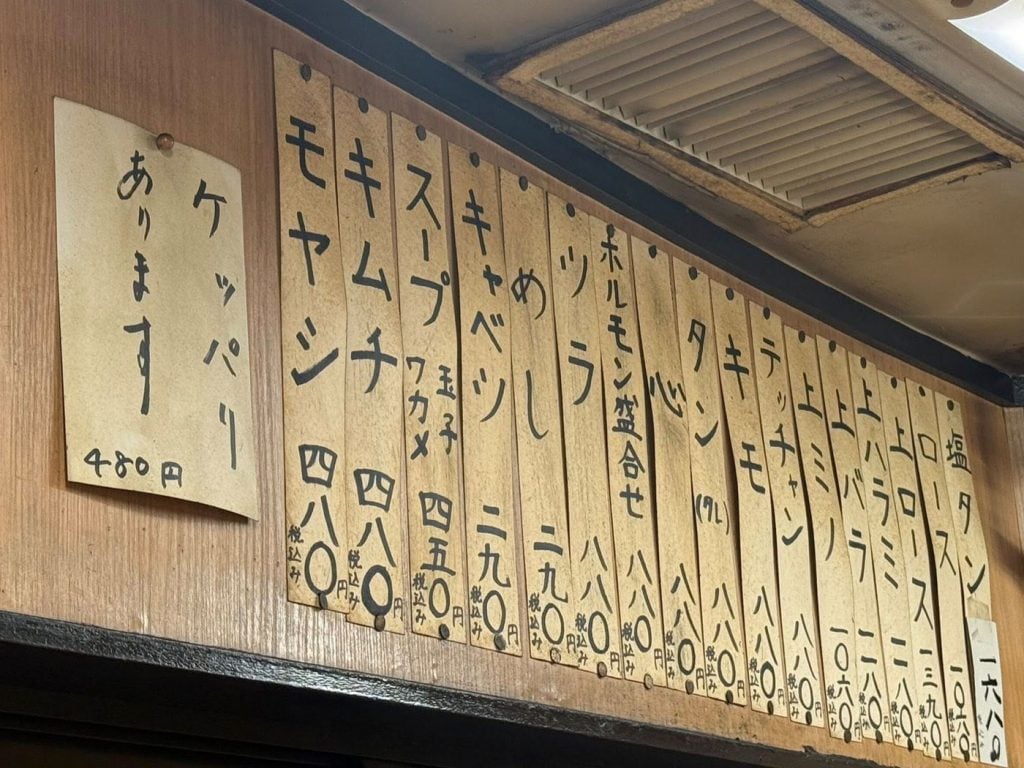 塩タン 一六八〇
ロース 一〇六〇円
上ロース 一三九〇円 税込み
上ハラミ 一二八〇円 税込み
上バラ 一二八〇円 税込み
上ミノ 一〇六〇円 税込み
テッチャン 八八〇円 税込み
キモ 八八〇円 税込み
タン (タレ) 八八〇円 税込み
心 八八〇円 税込み
ホルモン盛合せ 八八〇円 税込み
ツラ 八八〇円 税込み
めし 二九〇円 税込み
キャベツ 二九〇円 税込み
スープ 玉子 ワカメ 四五〇円 税込み
キムチ 四八〇円 税込み
モヤシ 四八〇円 税込み
ケッパリ
あります
480円